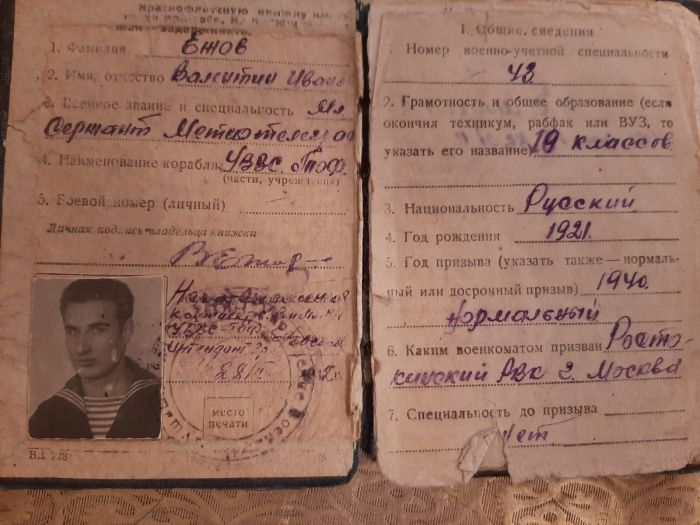 Краснофлотскую книжку
1. Фамилия Ежов
2. Имя, отчество Валентин Иван
3. Военное звание и специальность Мл
Сержант
4. Наименование корабля УВВС Тоф.
(части, учреждения)
5. Боевой номер (личный)
Личная подпись владельца книжки
УВВС
Интендант
28
2 г.
МЕСТО
ПЕЧАТИ
1. Общие сведения
Номер военно-учетной специальности
42
2. Грамотность и общее образование (если
окончил техникум, рабфак или ВУЗ, то
указать его название) классов
3. Национальность Русский
4. Год рождения 1921.
5. Год призыва (указать также—нормаль-
ный или досрочный призыв) 1940.
Нормальный
6. Каким военкоматом призван Росто-
кинский РВК г. Москва
7. Специальность до призыва
Нет